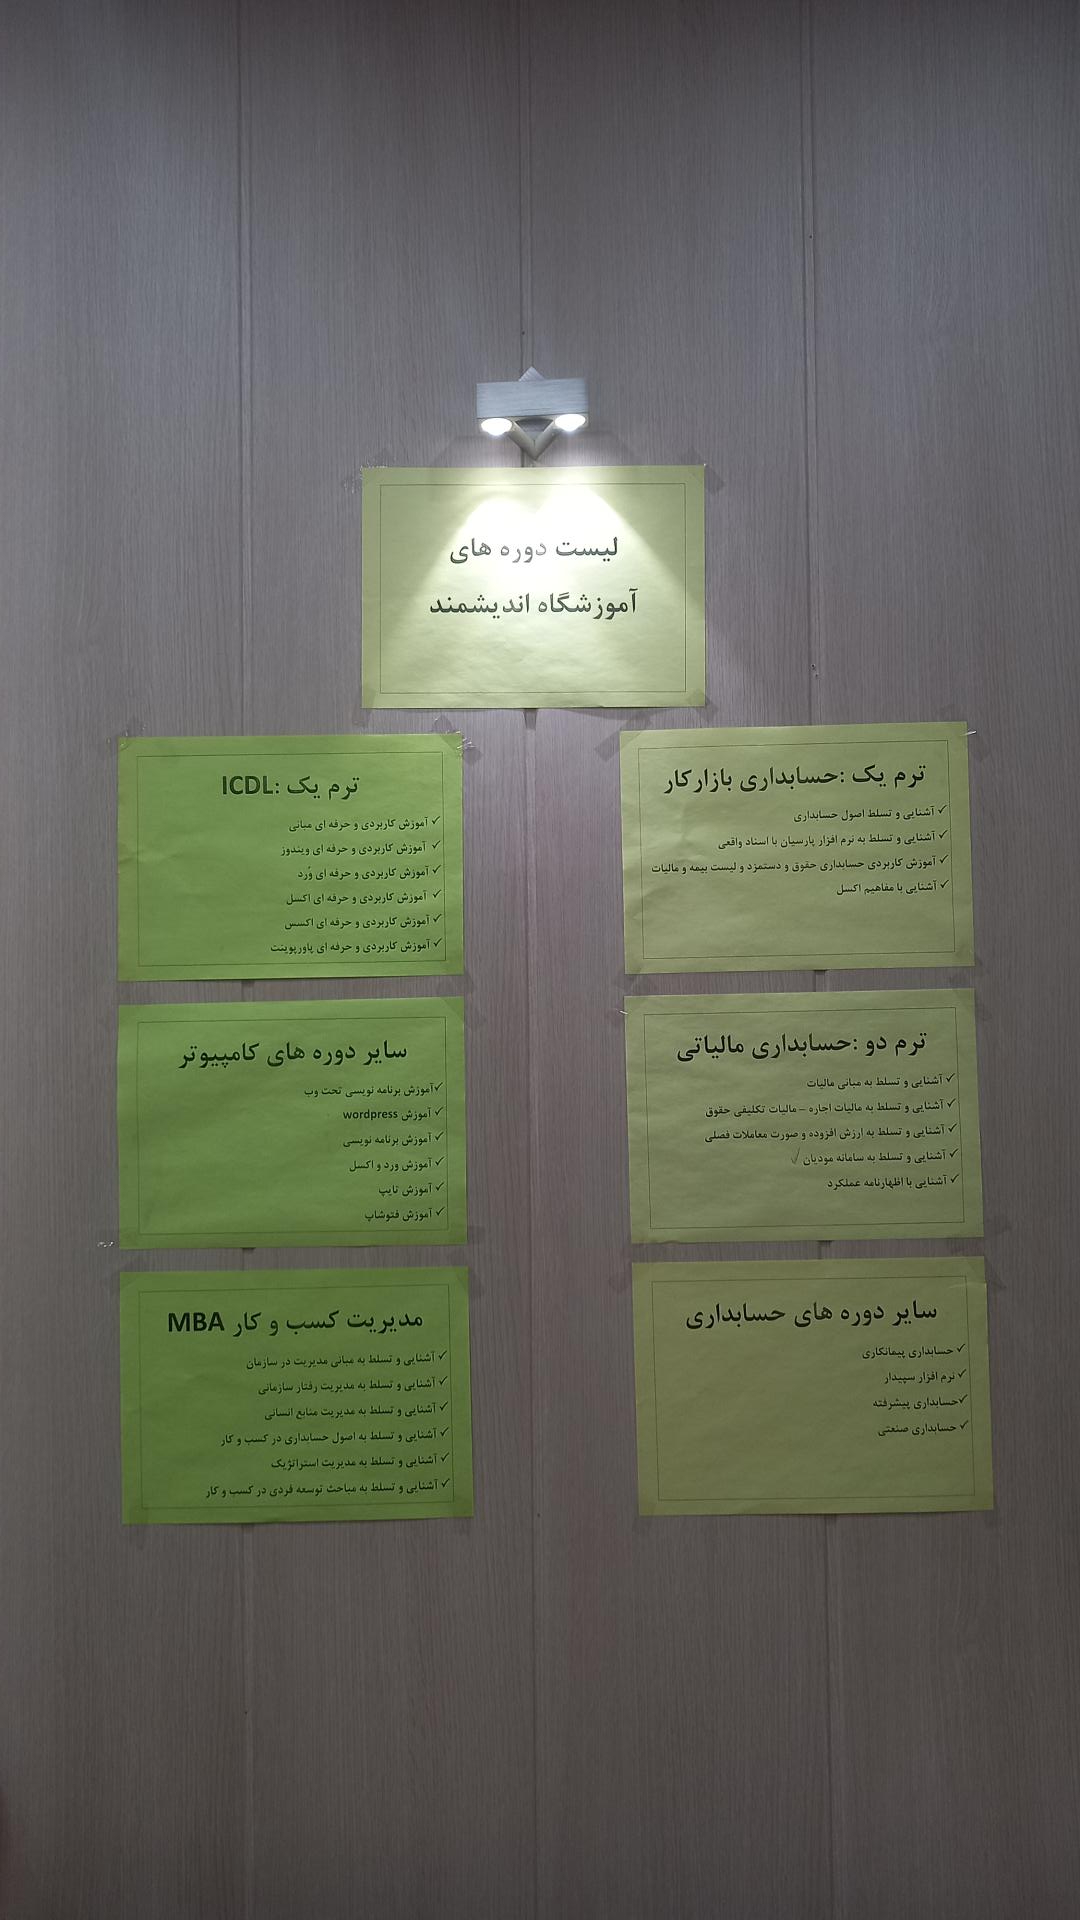 لیست دوره های
آموزشگاه اندیشمند
ترم یک :حسابداری بازارکار
✓ آشنایی و تسلط اصول حسابداری
✓ آشنایی و تسلط به نرم افزار پارسیان با اسناد واقعی
✓ آموزش کاربردی حسابداری حقوق و دستمزد و لیست بیمه و مالیات
✓ آشنایی با مفاهیم اکسل
ترم دو :حسابداری مالیاتی
✓ آشنایی و تسلط به مبانی مالیات
✓ آشنایی و تسلط به مالیات اجاره – مالیات تکلیفی حقوق
✓ آشنایی و تسلط به ارزش افزوده و صورت معاملات فصلی
✓ آشنایی و تسلط به سامانه مودیان ✓
✓ آشنایی با اظهارنامه عملکرد
سایر دوره های حسابداری
✓ حسابداری پیمانکاری
✓ نرم افزار سپیدار
✓حسابداری پیشرفته
✓ حسابداری صنعتی
ترم یک :ICDL
✓ آموزش کاربردی و حرفه ای مبانی
✓ آموزش کاربردی و حرفه ای ویندوز
✓ آموزش کاربردی و حرفه ای وُرد
✓ آموزش کاربردی و حرفه ای اکسل
✓ آموزش کاربردی و حرفه ای اکسس
✓ آموزش کاربردی و حرفه ای پاورپوینت
سایر دوره های کامپیوتر
✓آموزش برنامه نویسی تحت وب
✓ آموزش wordpress
✓ آموزش برنامه نویسی
✓ آموزش ورد و اکسل
✓ آموزش تایپ
✓ آموزش فتوشاپ
مدیریت کسب و کار MBA
✓ آشنایی و تسلط به مبانی مدیریت در سازمان
✓ آشنایی و تسلط به مدیریت رفتار سازمانی
✓ آشنایی و تسلط به مدیریت منابع انسانی
✓ آشنایی و تسلط به اصول حسابداری در کسب و کار
✓ آشنایی و تسلط به مدیریت استراتژیک
✓ آشنایی و تسلط به مباحث توسعه فردی در کسب و کار